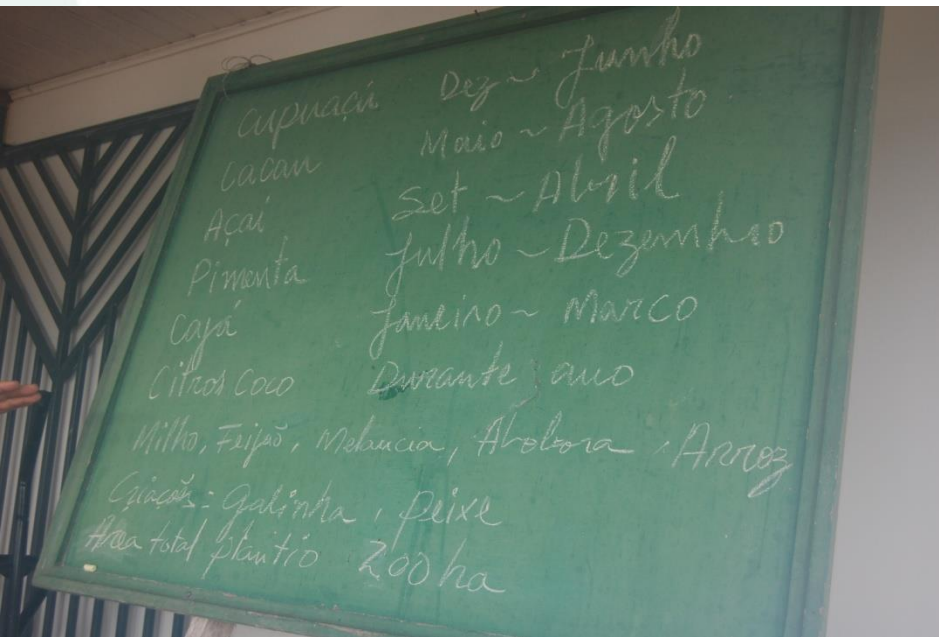 cupuaçú Dez ~ Junho
cacau Maio ~ Agosto
Açaí Set ~ Abril
Pimenta Julho ~ Dezembro
Cajá Janeiro ~ Marco
Citros Coco Durante ano
Milho, Feijão, Melancia, Abobora, Arroz
Criações - galinha, peixe
Area total plantio 200 ha